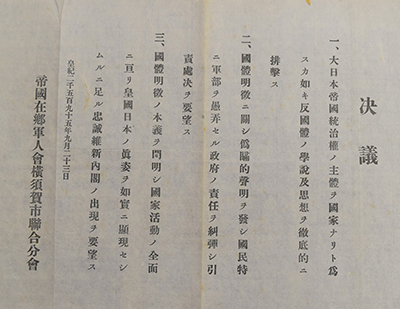 決議
一、大日本帝國統治權ノ主體ヲ國家ナリト爲
スカ如キ反國體ノ學說及思想ヲ徹底的ニ
排擊ス
二、國體明徵ニ關シ僞瞞的聲明ヲ發シ國民特
ニ軍部ヲ愚弄セル政府ノ責任ヲ糾彈シ引
責處决ヲ要望ス
三、國體明徵ノ本義ヲ闡明シ國家活動ノ全面
ニ亘リ皇國日本ノ眞姿ヲ如實ニ顯現セシ
ムルニ足ル忠誠維新內閣ノ出現ヲ要望ス
皇紀二千五百九十五年九月二十三日
帝國在鄕軍人會橫須賀市聯合分會